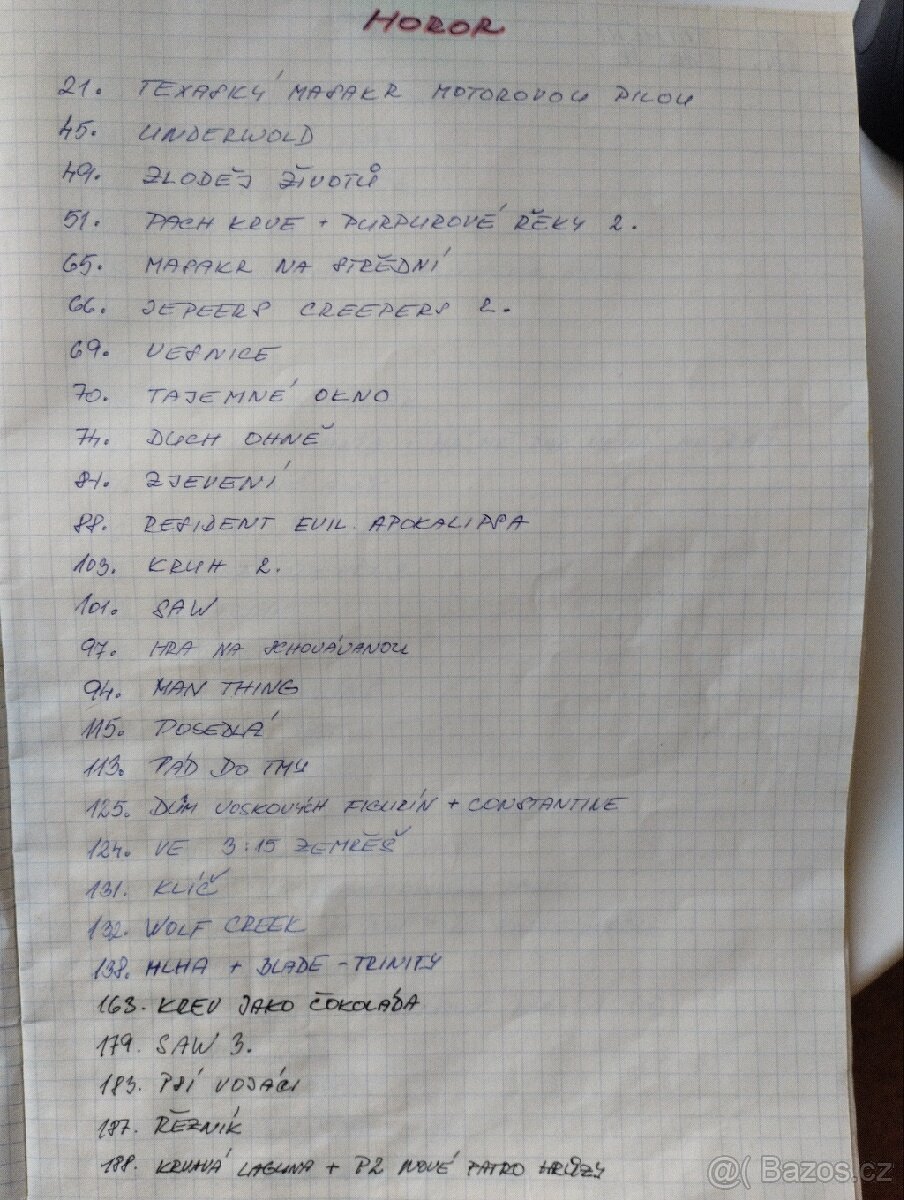 HOROR
21. TEXASKÝ MASAKR MOTOROVOU PILOU
45. UNDERWOLD
49. ZLODĚJ ŽIVOTŮ
51. PACH KRVE + PURPUROVÉ ŘĚKY 2.
65. MASAKR NA STŘEDNÍ
66. JEPEERS CREEPERS 2.
69. VESNICE
70. TAJEMNÉ OKNO
74. DUCH OHNĚ
84. ZJEVENÍ
88. RESIDENT EVIL APOKALIPSA
103. KRUH 2.
101. SAW
97. HRA NA SCHOVÁVANOU
94. MAN THING
115. POSEDLÁ
113. PÁD DO TMY
125. DŮM VOSKOVÝCH FIGURÍN + CONSTANTINE
124. VE 3:15 ZEMŘĚŠ
131. KLÍČ
132. WOLF CREEK
138. MLHA + BLADE - TRINITY
163. KREV JAKO ČOKOLÁDA
179. SAW 3.
183. PSÍ VOJÁCI
187. ŘĚZNÍK
188. KRVAVÁ LAGUNA + P2 NOVÉ PATRO HRŮZY
@( Bazos.cz